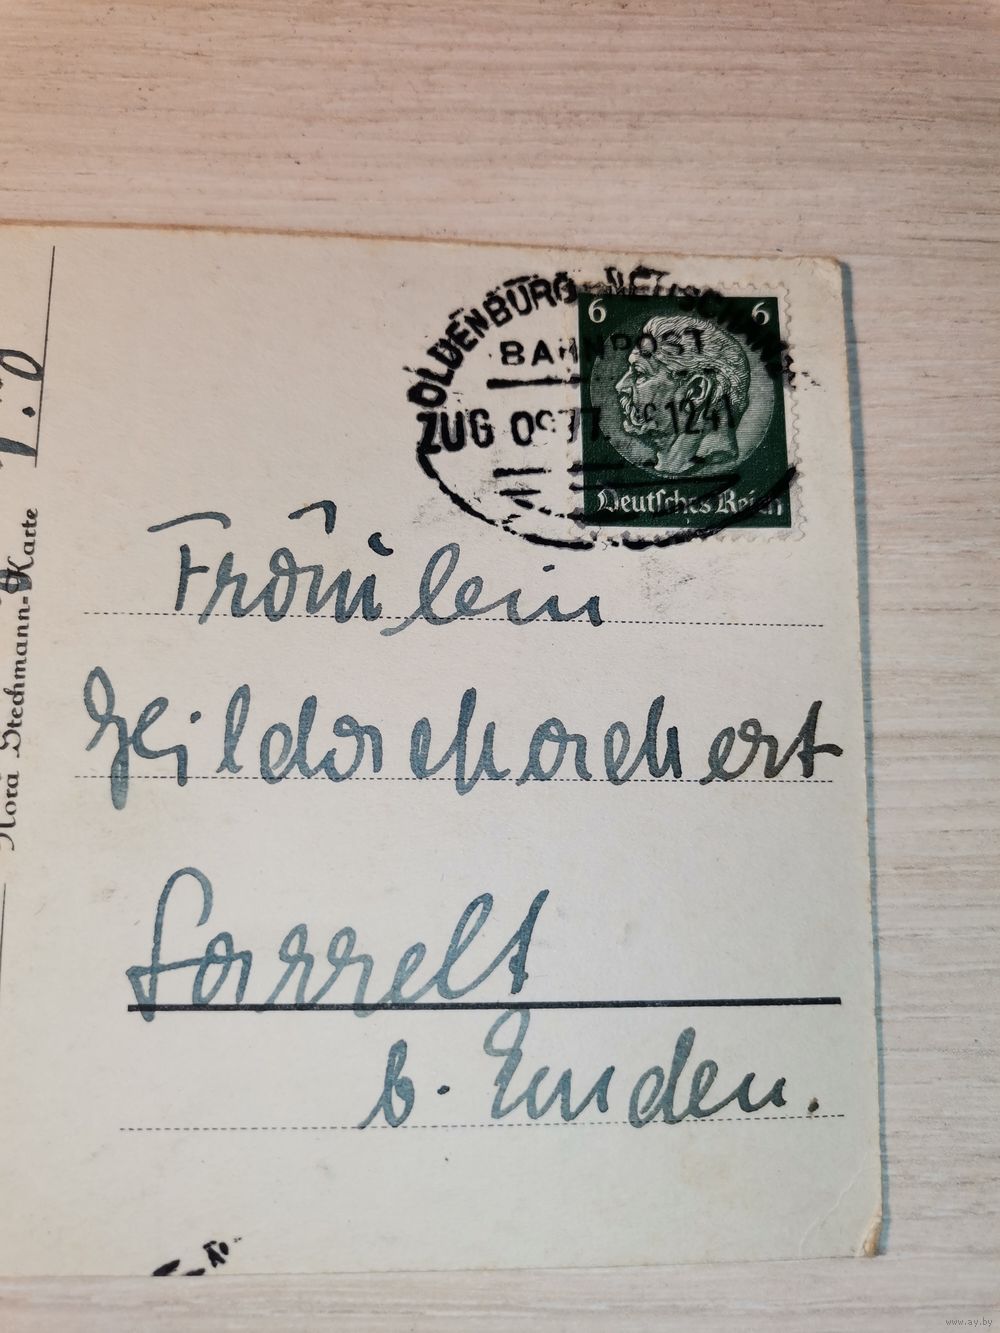 OLDENBURG
BAHNPOST
ZUG 0977 12 41
6 6
Deutsches Reich
Fräulein
Larrelt
b. Emden.
Nora Stechmann-Karte
www.ay.by